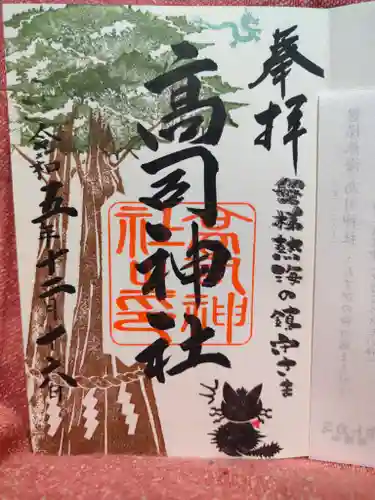 奉拝
磐梯熱海の鎮守さま
高司神社
高司神社之印
令和五年十二月十六日